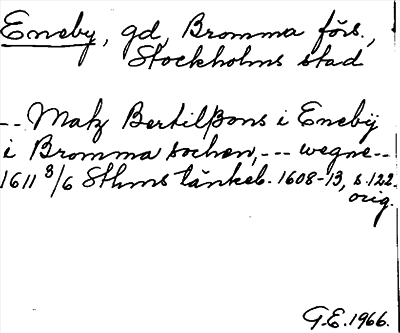 Eneby, gd, Bromma förs.,
Stockholms stad
-- Matz Bertilßons i Enebÿ
i Bromma sochen, --- wegne --
1611 8/6 Sthms tänkeb. 1608-13, s. 122.
orig.
G.E. 1966.